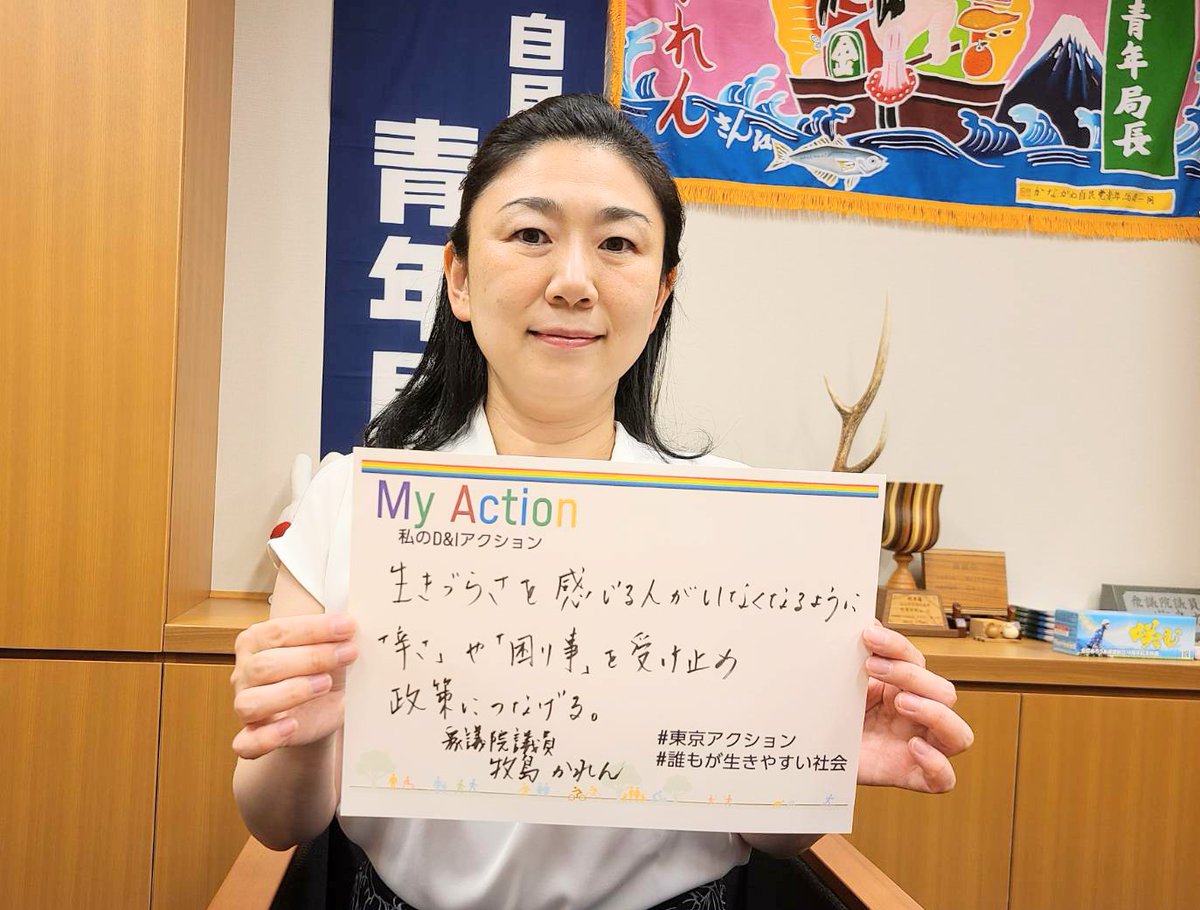 自民
青年局
れん
さん江
金
青年局長
かながわ自民党青年局
My Action
私のD&Iアクション
生きづらさを感じる人がいなくなるように
「辛さ」や「困り事」を受け止め
政策につなげる。
衆議院議員
牧島かれん
#東京アクション
#誰もが生きやすい社会
衆議院議員
咲む